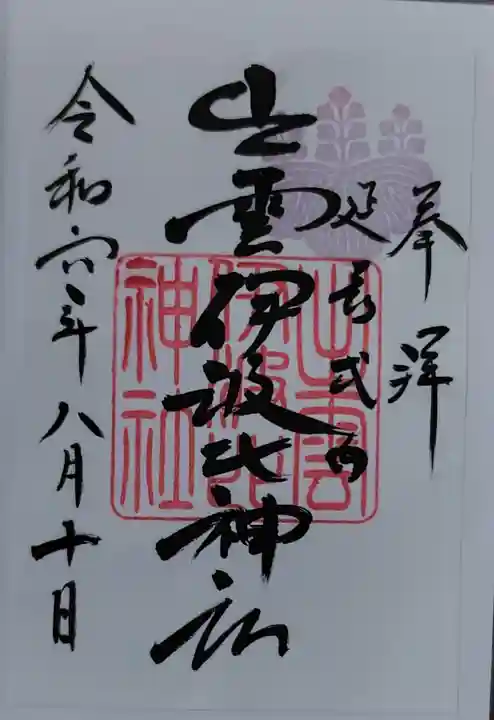 奉拝
延長式内
出雲伊波比神社
令和六年八月十日
出雲
伊波比
神社